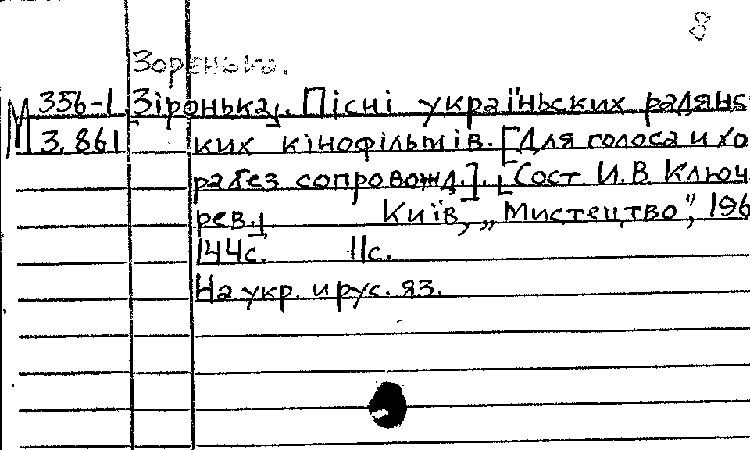 8
Зоренька.
М 356-1 Зіронька. Пісні українських радянс
3.861 ких кінофільмів. [Для голоса и хо
ра без сопровожд.]. [Сост И.В. Ключ
рев.] Київ, „Мистецтво", 196
144с. 11с.
На укр. и рус. яз.